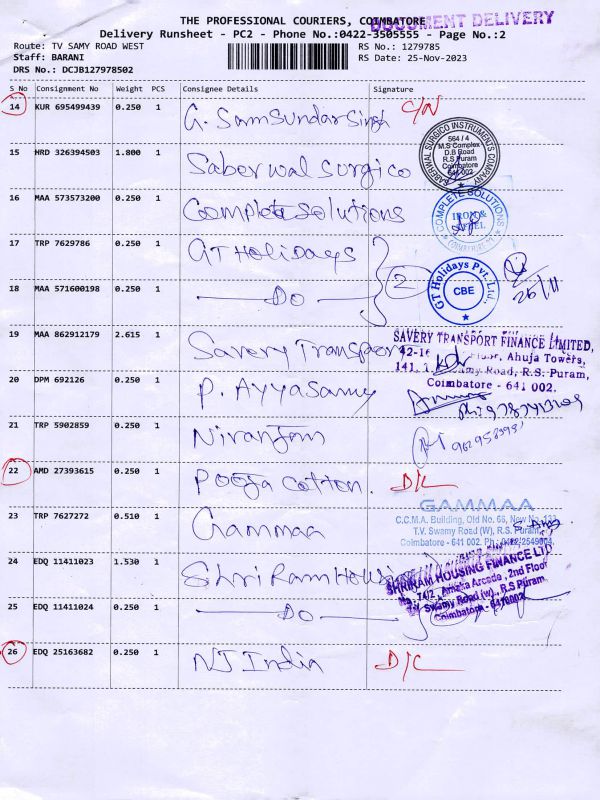 THE PROFESSIONAL COURIERS, COIMBATORE
DOCUMENT DELIVERY
Delivery Runsheet - PC2 - Phone No.:0422-3505555 - Page No.:2
Route: TV SAMY ROAD WEST
RS No.: 1279785
Staff: BARANI
RS Date: 25-Nov-2023
DRS No.: DCJB127978502
S No Consignment No Weight PCS Consignee Details Signature
14 KUR 695499439 0.250 1 G. Samsundar Singh C/N
15 HRD 326394503 1.800 1 Saberwal Surgico
SABERWAL SURGICO INSTRUMENTS COMPANY
564 / 4
M.S Complex
D.B Road
R.S Puram
Coimbatore
641 002
16 MAA 573573200 0.250 1 Complete Solutions
COMPLETE SOLUTIONS
17 TRP 7629786 0.250 1 GT Holidays
18 MAA 571600198 0.250 1 Do 2
GT Holidays Pvt. Ltd.,
CBE
25/11
19 MAA 862912179 2.615 1 Savery Transport
SAVERY TRANSPORT FINANCE LIMITED,
Floor, Ahuja Towers,
Road, R.S. Puram,
Coimbatore - 641 002.
20 DPM 692126 0.250 1 P. Ayyasamy
21 TRP 5902859 0.250 1 Niranjom
22 AMD 27393615 0.250 1 Pooja Cotton. D/L
23 TRP 7627272 0.510 1 Gammaa
GAMMAA
C.C.M.A. Building, Old No. 66, New No.
T.V. Swamy Road (W), R.S. Puram,
Coimbatore - 641 002. Ph :
24 EDQ 11411023 1.530 1 Shri Ram Housi
SHRIRAM HOUSING FINANCE LTD
No. 74/2, Amalia Arcade, 2nd Floor
T.V. Swamy Road (w), R.S Puram
Coimbatore - 6410002
25 EDQ 11411024 0.250 1 Do
26 EDQ 25163682 0.250 1 NJ India D/L